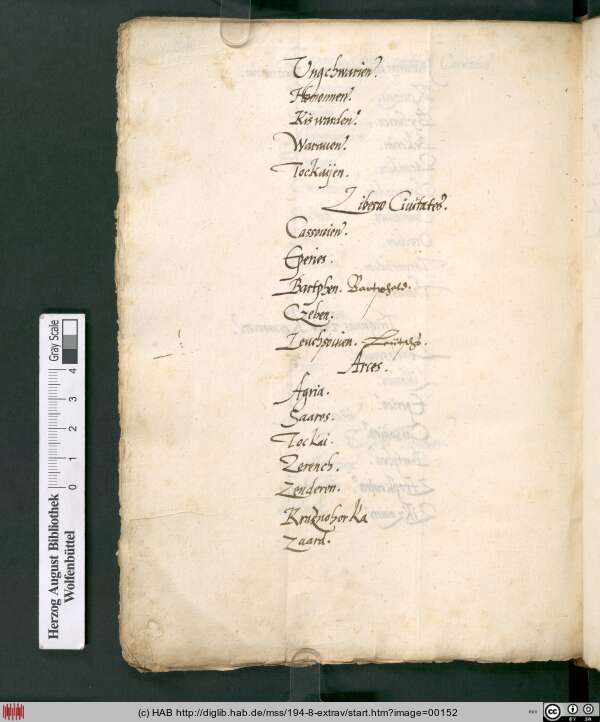 Ungchwarien.
Homonnen.
Kis warden.
Warauen.
Tockaijen.
Liberæ Ciuitates.
Cassouien.
Eperies.
Bartphen. Bartphald.
Czeben.
Leuchsouien.
Arces.
Agria.
Saaros.
Tockai.
Zerench.
Zenderen.
Kraznohorka
Zaard.
Gray Scale
0 1 2 3 4
Herzog August Bibliothek
Wolfenbüttel
(c) HAB http://diglib.hab.de/mss/194-8-extrav/start.htm?image=00152